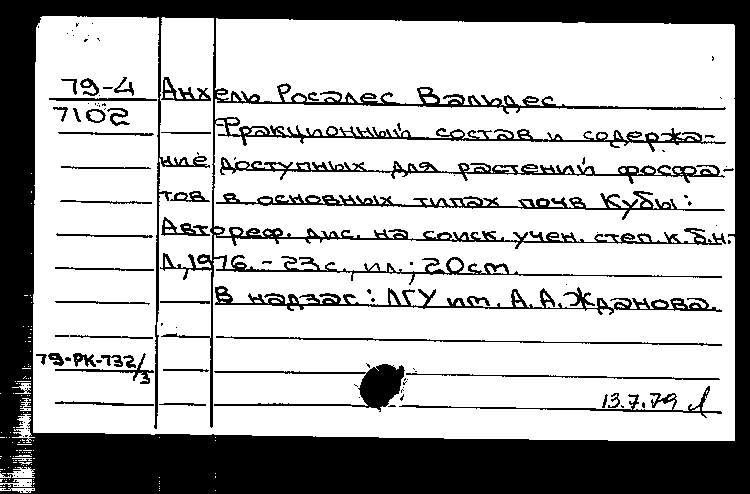 79-4
7102
Анхель Росалес Вальдес.
Фракционный состав и содержа-
ние доступных для растений фосфа-
тов в основных типах почв Кубы:
Автореф. дис. на соиск. учен. степ. к.б.н.-
Л., 1976. - 23 с., ил.; 20 см.
В надзаг.: ЛГУ им. А. А. Жданова.
79-РК-732/3
13.7.79